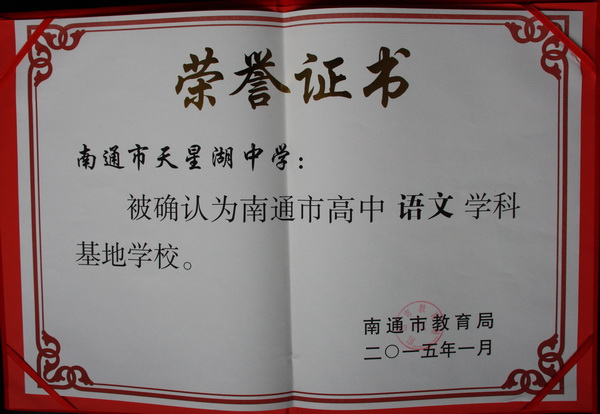 荣誉证书
南通市天星湖中学：
被确认为南通市高中 语文 学科
基地学校。
南通市教育局
二〇一五年一月